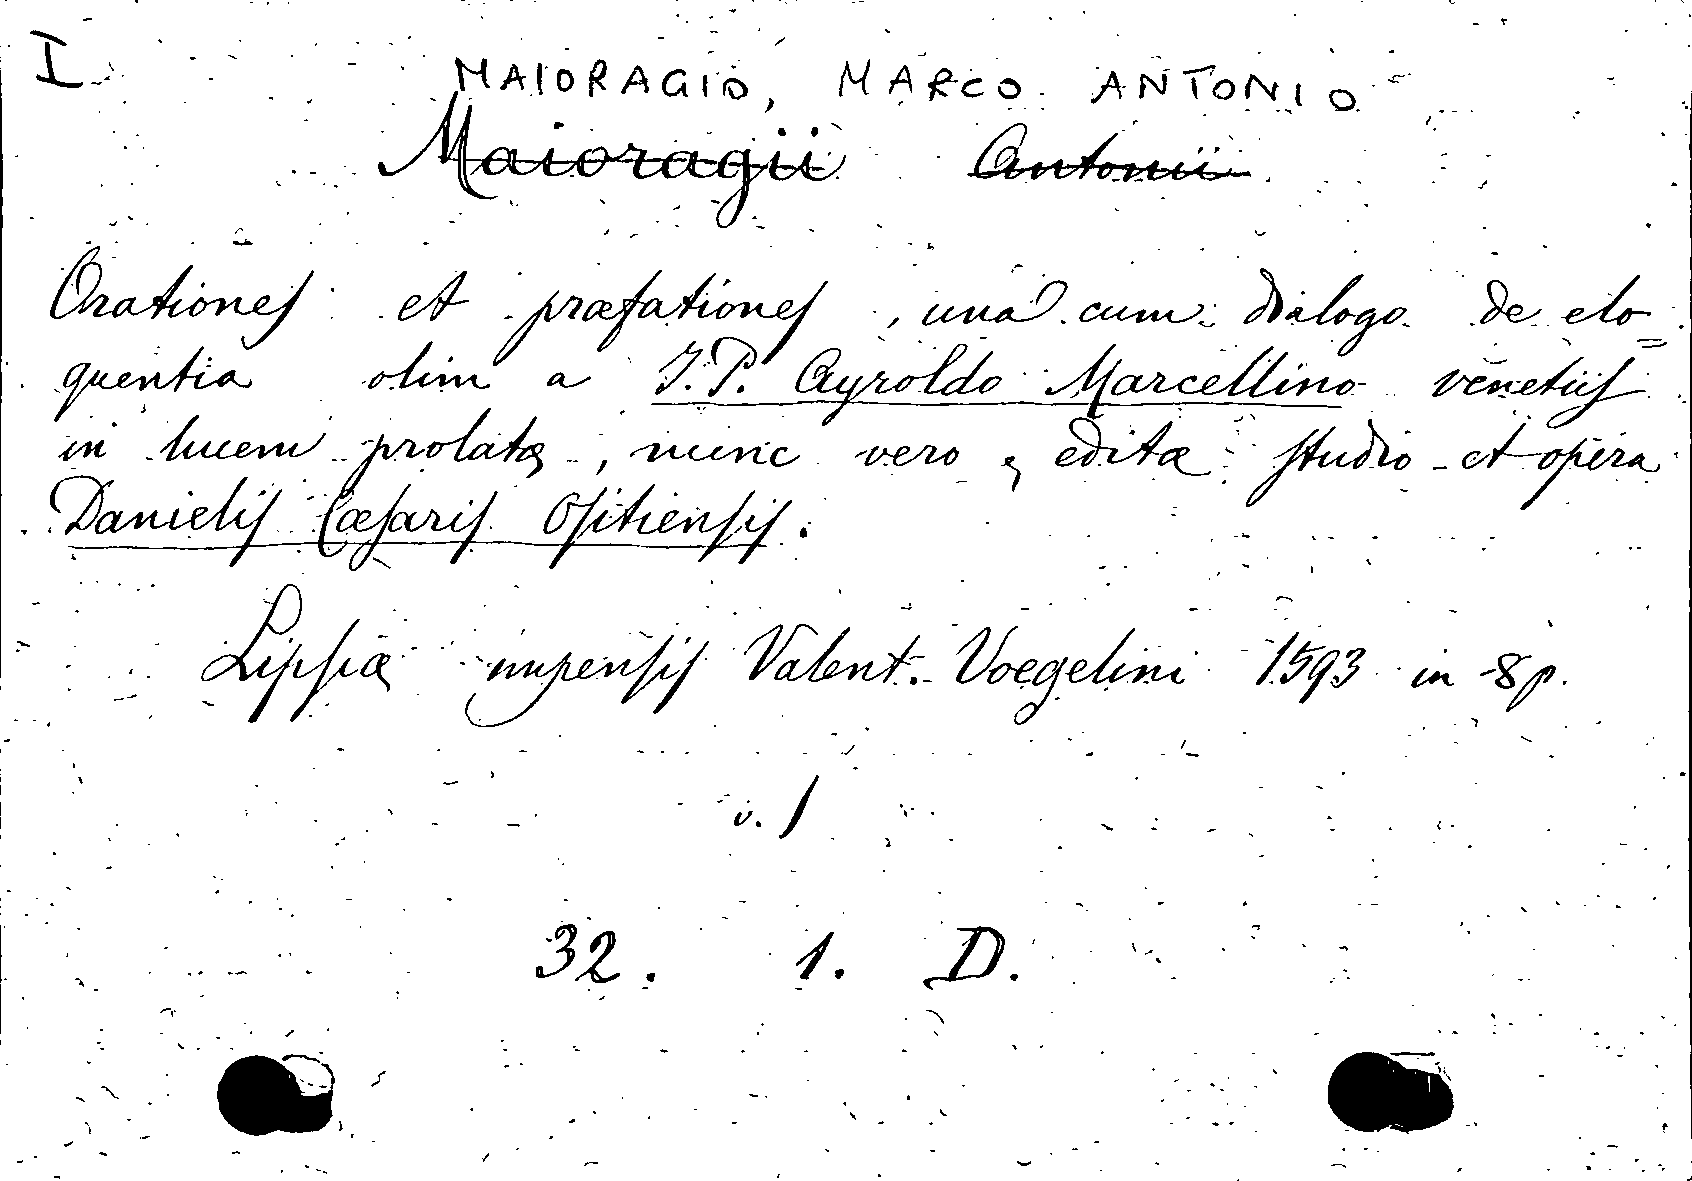 I
MAIORAGIO, MARCO ANTONIO
Maioragii Antonii
Orationes et præfationes, una cum dialogo de elo=
quentia olim a J. P. Ayroldo Marcellino venetiis
in lucem prolatæ, nunc vero, editæ studio et opera
Danielis Cæsaris Ositiensis.
Lipsiæ impensis Valent. Voegelini 1593 in 8 p.
v. 1
32. 1. D.